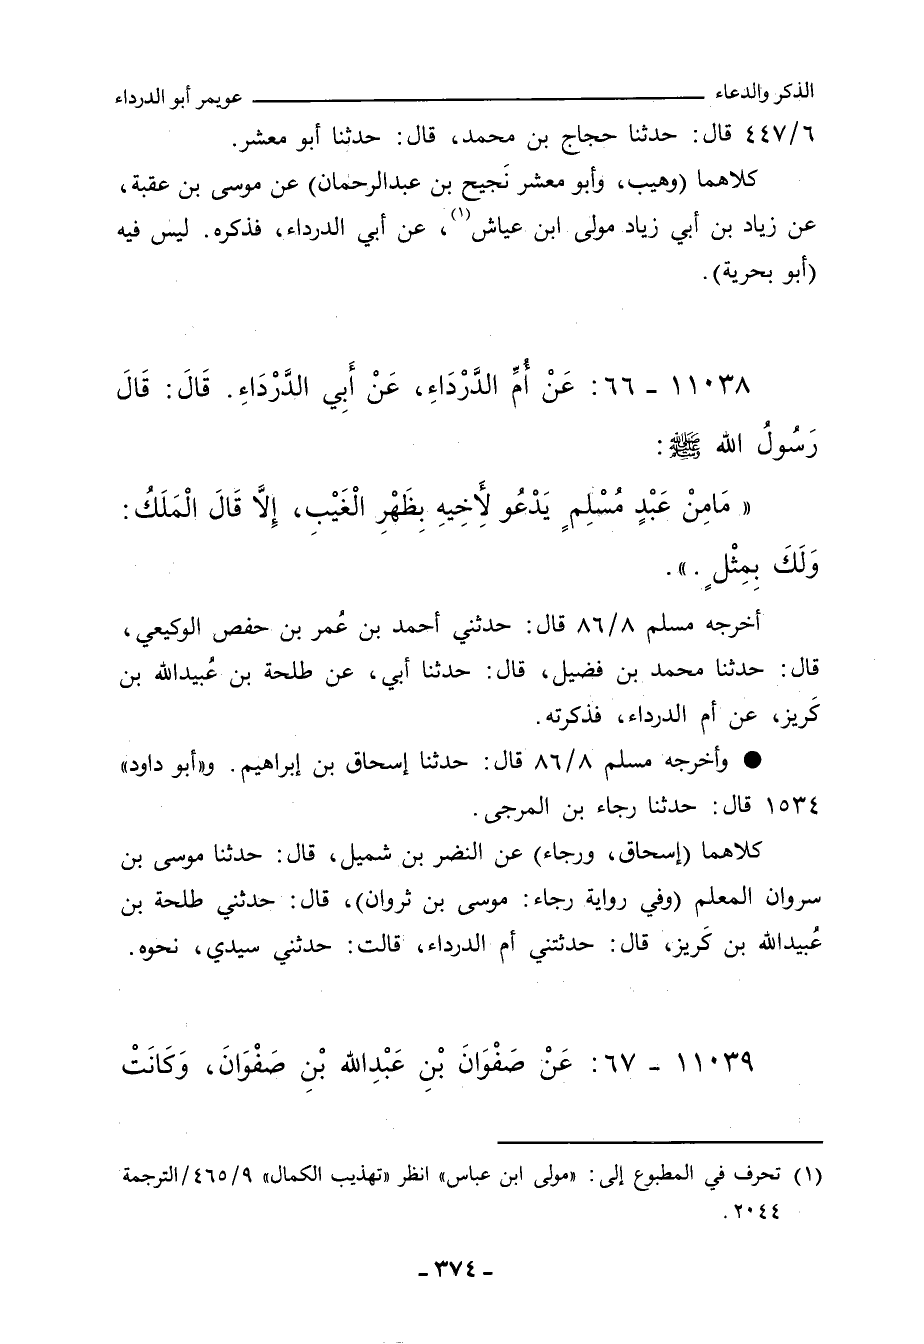 الذكر والدعاء ـــــــــــــــــــــ عويمر أبو الدرداء
٤٤٧/٦ قال: حدثنا حجاج بن محمد، قال: حدثنا أبو معشر.
كلاهما (وهيب، وأبو معشر نَجيح بن عبدالرحمان) عن موسى بن عقبة،
عن زياد بن أبي زياد مولى ابن عياش(١)، عن أبي الدرداء، فذكره. ليس فيه
(أبو بحرية).
١١٠٣٨ - ٦٦: عَنْ أُمِّ الدَّرْدَاءِ، عَنْ أَبِي الدَّرْدَاءِ. قَالَ: قَالَ
رَسُولُ الله ﷺ:
« مَامِنْ عَبْدٍ مُسْلِمٍ يَدْعُو لأَخِيهِ بِظَهْرِ الْغَيْبِ، إِلَّا قَالَ الْمَلَكُ:
وَلَكَ بِمِثْلٍ.».
أخرجه مسلم ٨٦/٨ قال: حدثني أحمد بن عُمر بن حفص الوكيعي،
قال: حدثنا محمد بن فضيل، قال: حدثنا أبي، عن طلحة بن عُبيدالله بن
كَريز، عن أم الدرداء، فذكرته.
● وأخرجه مسلم ٨٦/٨ قال: حدثنا إسحاق بن إبراهيم. و«أبو داود»
١٥٣٤ قال: حدثنا رجاء بن المرجى.
كلاهما (إسحاق، ورجاء) عن النضر بن شميل، قال: حدثنا موسى بن
سروان المعلم (وفي رواية رجاء: موسى بن ثروان)، قال: حدثني طلحة بن
عُبيدالله بن كَريز، قال: حدثتني أم الدرداء، قالت: حدثني سيدي، نحوه.
١١٠٣٩ - ٦٧: عَنْ صَفْوَانَ بْنِ عَبْدِالله بْنِ صَفْوَانَ، وَكَانَتْ
(١) تحرف في المطبوع إلى: «مولى ابن عباس» انظر «تهذيب الكمال» ٤٦٥/٩/الترجمة
٢٠٤٤.
- ٣٧٤ -